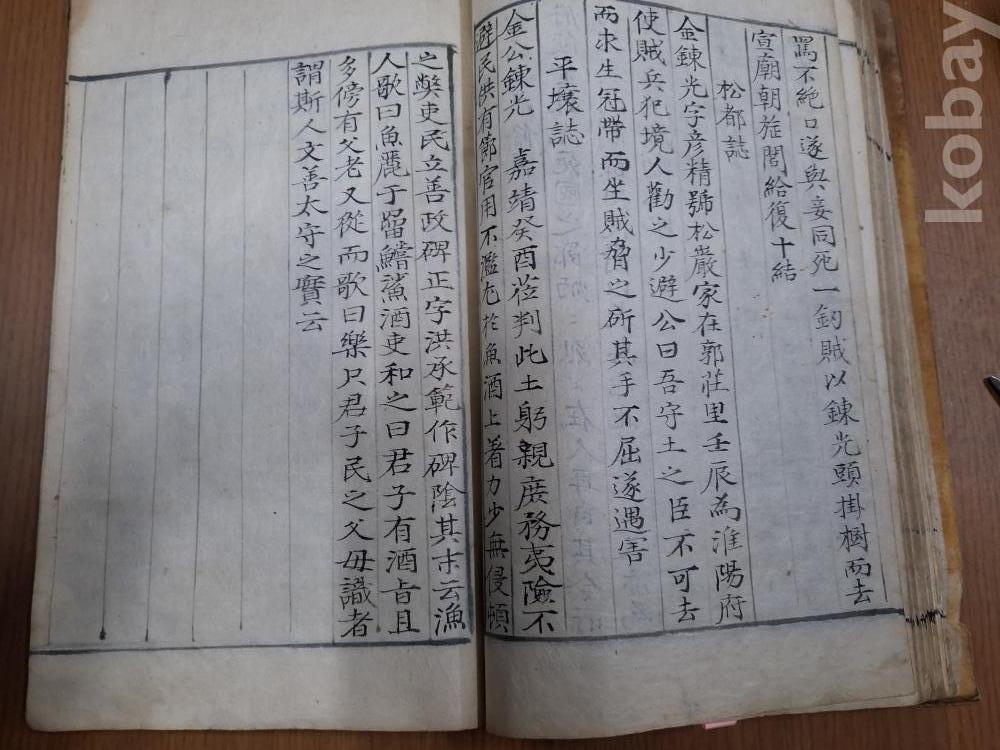 罵不絶口遂與妾同死一釰賊以鍊光頭掛樹而去
宣廟朝旌閭給復十結
松都誌
金鍊光字彦精號松巖家在郭莊里壬辰為淮陽府
使賊兵犯境人勸之少避公曰吾守土之臣不可去
而求生冠帶而坐賊脅之斫其手不屈遂遇害
平壤誌
金公鍊光 嘉靖癸酉莅判此土躬親庶務夷險不
避民供有節官用不濫尤於魚酒上着力少無侵頓
之獘吏民立善政碑正字洪承範作碑陰其末云漁
人歌曰魚麗于罶鱨鯊酒吏和之曰君子有酒旨且
多傍有父老又從而歌曰樂只君子民之父母識者
謂斯人文善太守之實云
kobay